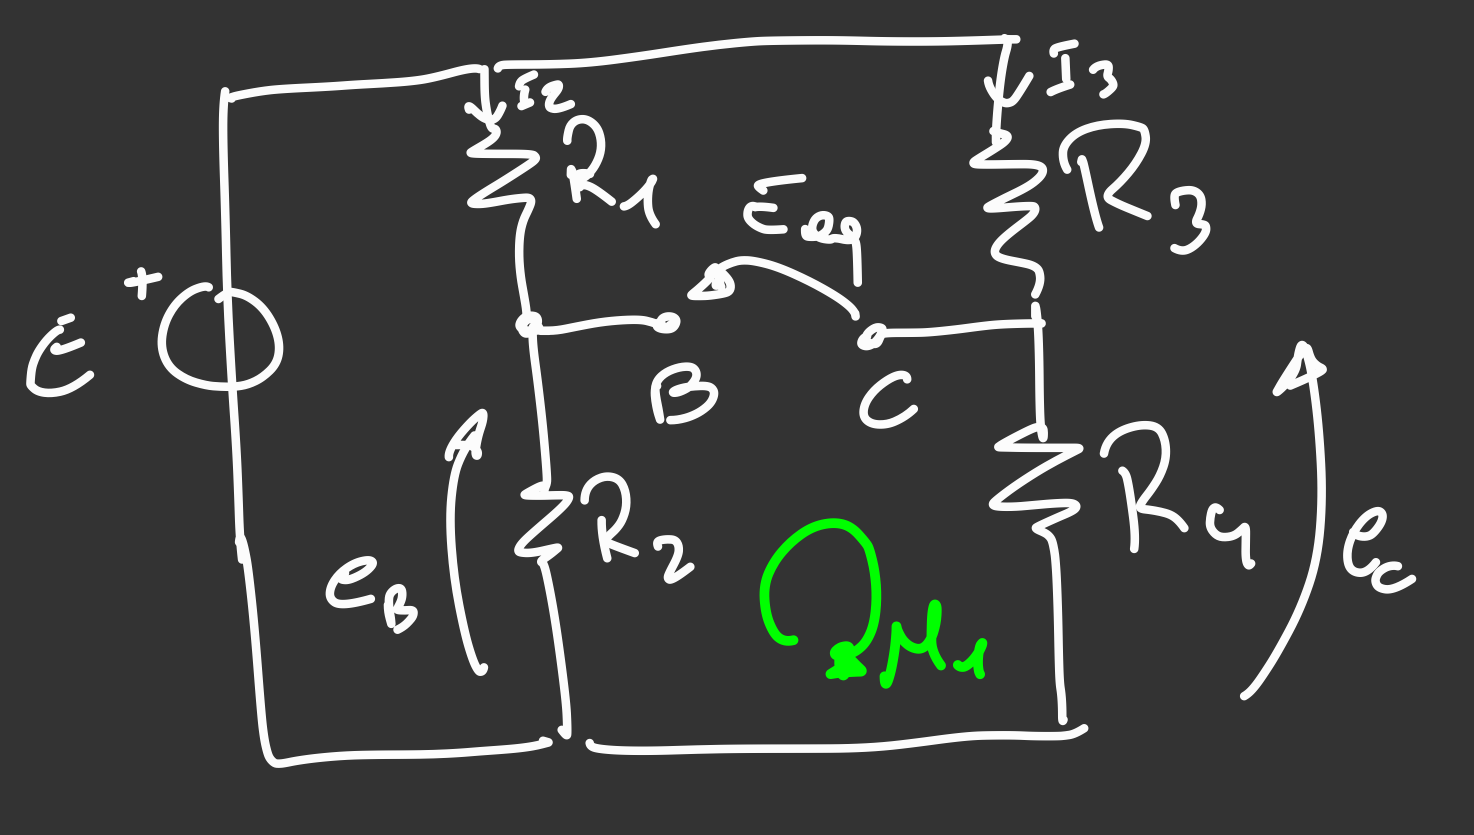 I2
I3
R1
R3
Eeq
+
E
B
C
eB
R2
R4
ec
M1